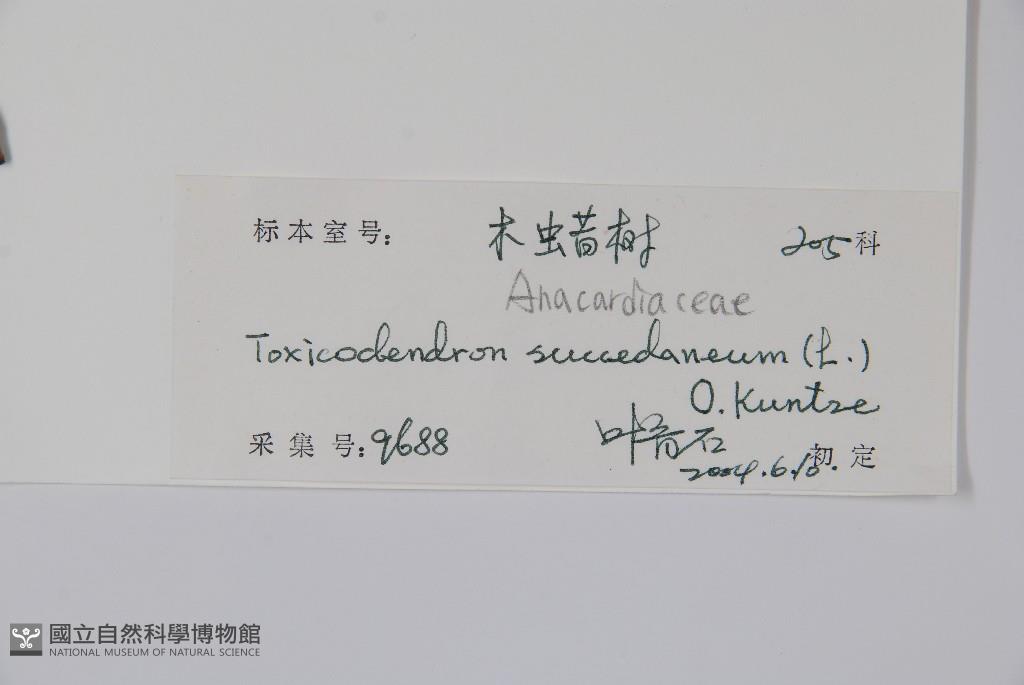 标本室号: 木蜡树 205科
Anacardiaceae
Toxicodendron succedaneum (L.)
O. Kuntze
采集号: 9688 叶育石 初定
2004.6.10.
國立自然科學博物館
NATIONAL MUSEUM OF NATURAL SCIENCE